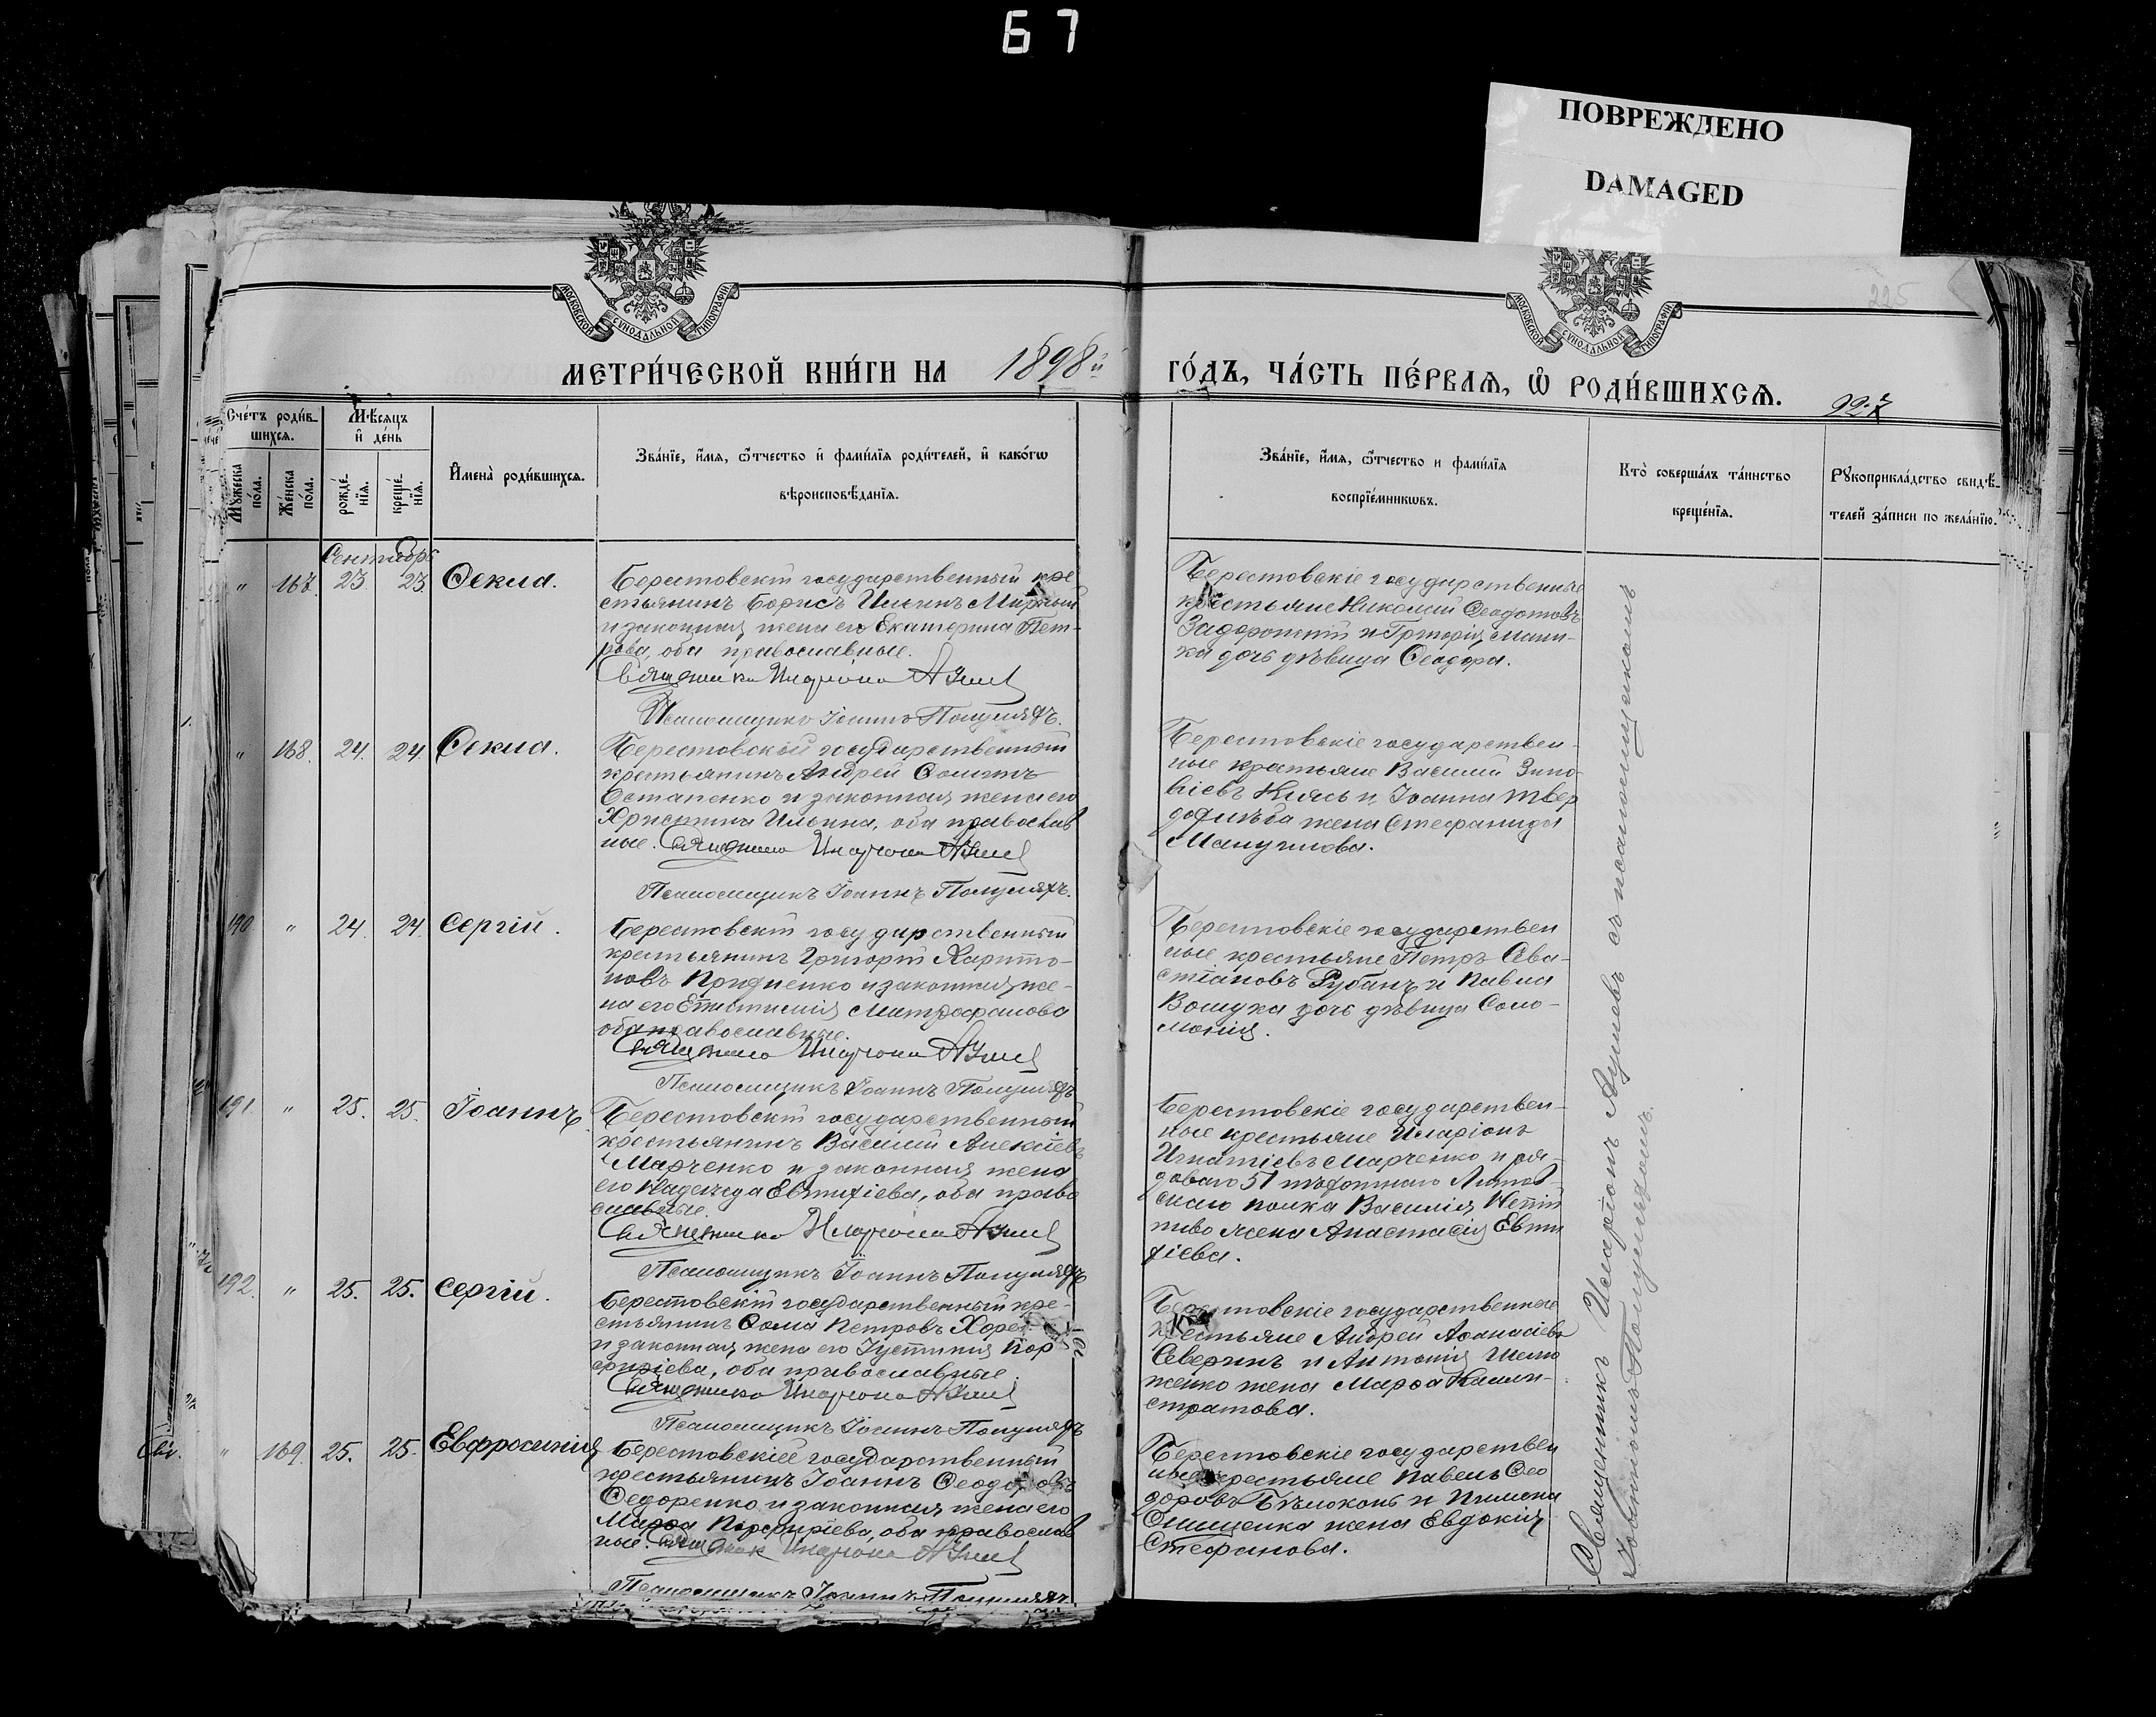 67
ПОВРЕЖДЕНО
DAMAGED
МОСКОВСКОЙ СѴНОДАЛЬНОЙ ТИПОГРАФІИ
МОСКОВСКОЙ СѴНОДАЛЬНОЙ ТИПОГРАФІИ
225
МЕТРИ́ЧЕСКОЙ КНИ́ГИ НА 1898й
ГО́ДЪ, ЧА́СТЬ ПЕ́РВАѦ, Ѡ РОДИ́ВШИХСѦ.
227
Сче́тъ роди́в-
шихся.
Мѣ́сяцъ
и де́нь
Му́жеска
по́ла.
Же́нска
по́ла.
рожде́-
нїя.
креще́-
нїя.
Имена̀ роди́вшихся.
Зва́нїе, и́мя, ѻ́тчество и фами́лїя роди́телей, и како́гѡ
вѣроисповѣ́данїя.
Зва́нїе, и́мя, ѻ́тчество и фами́лїя
воспрїе́мникѡвъ.
Кто̀ соверша́лъ та́инство
креще́нїя.
Рукоприкла́дство свидѣ́-
телей за́писи по жела́нїю.
Сентябрь
" 167. 23. 23. Ѳекла.
Берестовскій государственный кре
стьянинъ Борисъ Ильинъ Мирный
и законная жена его Екатерина Пет-
рова, оба православные.
Священникъ Иларіонъ
Псаломщикъ Іоаннъ Полуляхъ.
Берестовскіе государственные
крестьяне Николай Ѳеодотовъ
Задорожній и Григорія
дочь дѣвица Ѳеодора.
" 168. 24. 24. Ѳекла.
Берестовскій государственный
крестьянинъ Андрей Ѳоминъ
Остапенко и законная жена его
Христина Ильина, оба православ
ные. Священникъ Иларіонъ
Псаломщикъ Іоаннъ Полуляхъ.
Берестовскіе государствен-
ные крестьяне Василій Зино-
віевъ Князь и Іоанна Твер
дохлѣба жена Стефанида
Мануилова.
190. " 24. 24. Сергій.
Берестовскій государственный
крестьянинъ Григорій Харито-
новъ Придненко и законная же-
на его Епистимія Митрофанова
оба православные.
Священникъ Иларіонъ
Псаломщикъ Іоаннъ Полуляхъ
Берестовскіе государствен
ные крестьяне Петръ Сева-
стіановъ Рубанъ и Павла
Вощука дочь дѣвица Соло-
монія.
191. " 25. 25. Іоаннъ
Берестовскій государственный
крестьянинъ Василій Алексіевъ
Марченко и законная жена
его Надежда Евтихіева, оба право
славные.
Священникъ Иларіонъ
Псаломщикъ Іоаннъ Полуляхъ
Берестовскіе государствен-
ные крестьяне Иларіонъ
Игнатіевъ Марченко и ря-
доваго 51 пѣхотнаго Литов-
скаго полка Василія
жена Анастасія Евти
хіева.
192. " 25. 25. Сергій.
Берестовскій государственный кре-
стьянинъ Ѳома Петровъ
и законная жена его Іустинія Пор
фиріева, оба православные.
Священникъ Иларіонъ
Псаломщикъ Іоаннъ Полуляхъ
Берестовскіе государственные
крестьяне Андрей Аѳанасіевъ
Северинъ и Антонія
жена Марѳа Калли-
стратова.
" 169. 25. 25. Евфросинія
Берестовскіей государственный
крестьянинъ Іоаннъ Ѳеодоровъ
Ѳедоренко и законная жена его
Марѳа Порфиріева, оба православ
ные. Священник Иларіонъ
Псаломщикъ Іоаннъ Полуляхъ
Берестовскіе государствен
ные крестьяне Павелъ Ѳео
доровъ Бѣлоконь и Пимена
Онищенка жена Евдокія
Стефанова.
Священникъ Иларіонъ съ псаломщикомъ
Іоанномъ Полуляхомъ.